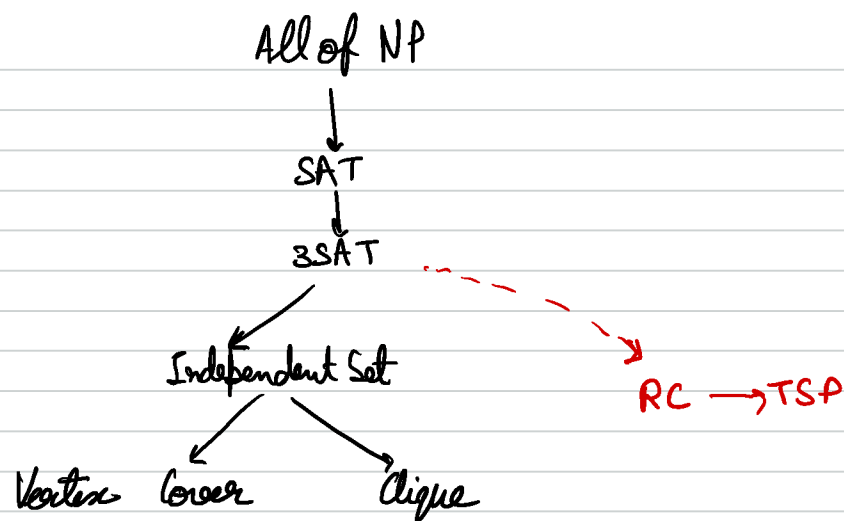 All of NP
SAT
3SAT
Independent Set
RC → TSP
Vertex Cover Clique